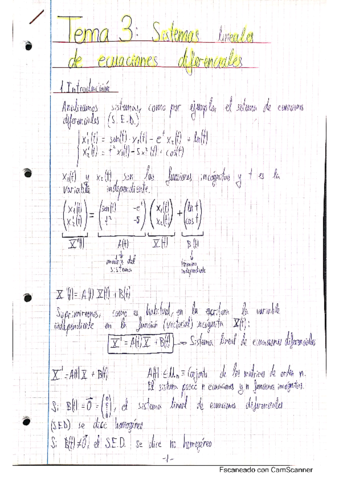 Tema 3: Sistemas lineales
de ecuaciones diferenciales
1. Introducción
Analizamos sistemas, como por ejemplo el sistema de ecuaciones
diferenciales (S.E.D.)
x₁'(t) = sen(t)·x₁(t) - eᵗ x₂(t) + ln(t)
x₂'(t) = t² x₁(t) - 5x₂(t) + cos(t)
x₁(t) y x₂(t) son las funciones incógnitas y t es la
variable independiente.
(x₁'(t) x₂'(t)) = (sen(t) -eᵗ t² -5) (x₁(t) x₂(t)) + (ln t cos t)
X'(t) A(t) X(t) B(t)
matriz del sistema término independiente
X'(t) = A(t) X(t) + B(t)
Suprimiremos, como es habitual, en la escritura la variable
independiente en la función (vectorial) incógnita X(t):
X' = A(t)X + B(t) Sistema lineal de ecuaciones diferenciales
X' = A(t)X + B(t) A(t) ∈ Mₙ = conjunto de las matrices de orden n.
El sistema posee n ecuaciones y n funciones incógnitas.
Si B(t) = 0 = (0 0 ⋮ 0), el sistema lineal de ecuaciones diferenciales
(S.E.D) se dice homogéneo
Si B(t) ≠ 0, el S.E.D. se dice no homogéneo
-1-
Escaneado con CamScanner